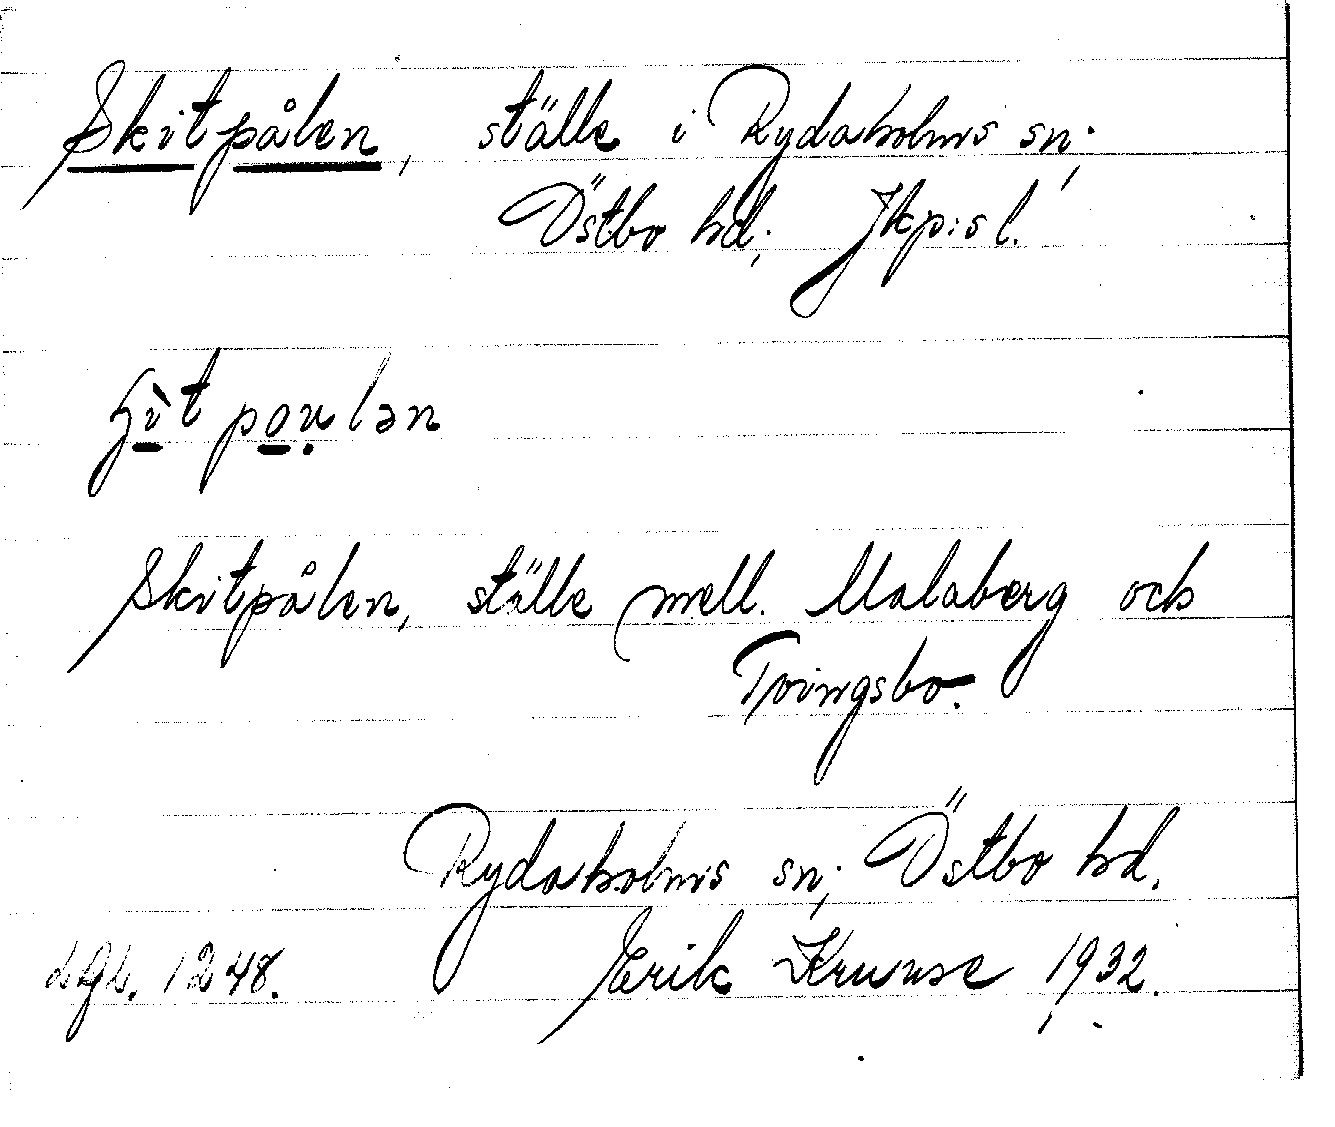 Skitpålen, ställe i Rydaholms sn;
Östbo hd; Jkp:s l.
poulən
Skitpålen, ställe mell. Malaberg och
Tvingsbo.
Rydaholms sn; Östbo hd.
1248. Erik Kruuse 1932.